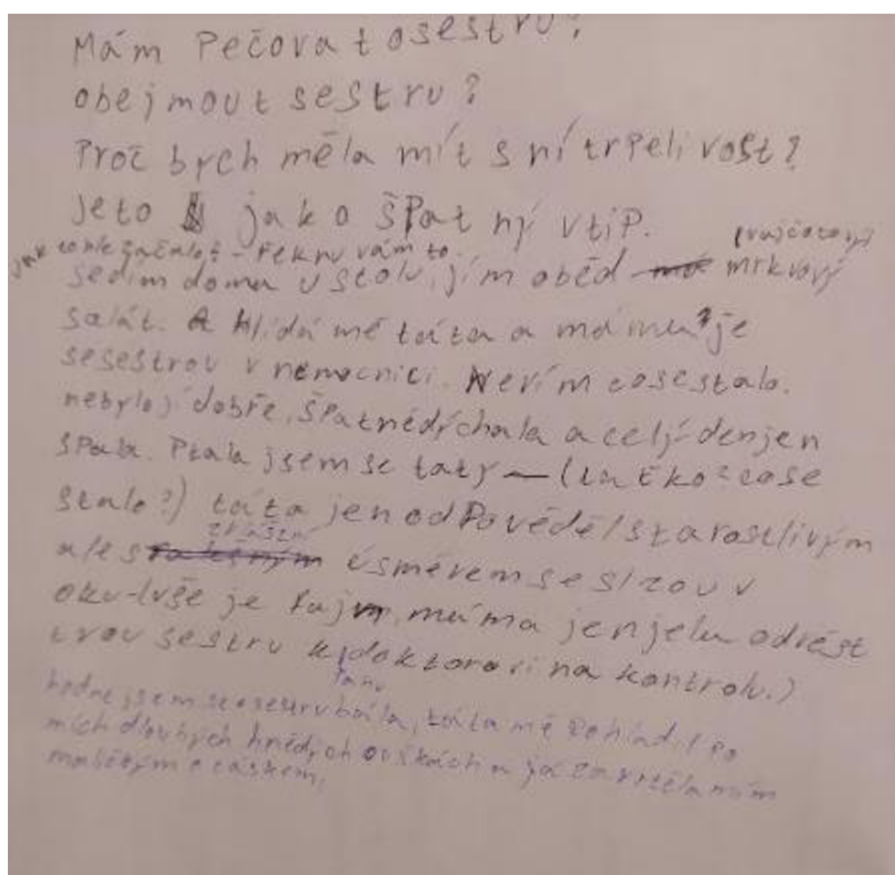 Mám Pečovat osestru?
obejmout sestru?
Proč bych měla mít s ní trpelivost?
jeto jako šPatný vtiP.
jak conle začalo? - řeknu vám to. (rajčatový)
sedím doma u stolu, jím oběd mrkvový
salát. A hlídá mě táta a máma je
sesestrou v nemocnici. Nevím cosestalo.
nebylo jí dobře, šPatnědýchala a celý denjen
sPala. Ptala jsem se taty — (tatko? case
stalo?) táta jen odPověděl starostlivým
ale s zvláštn úsměvem se slzou v
oku-(vše je fajn, máma jen jela odvést
tvou sestru k doktorovi na kontrolu.)
Panu
hodně jsem se osestru bála, táta mě Pohladil Po
mích dlouhých hnědých ouškách a já zavrtěla mím
malčkým ocáskem,